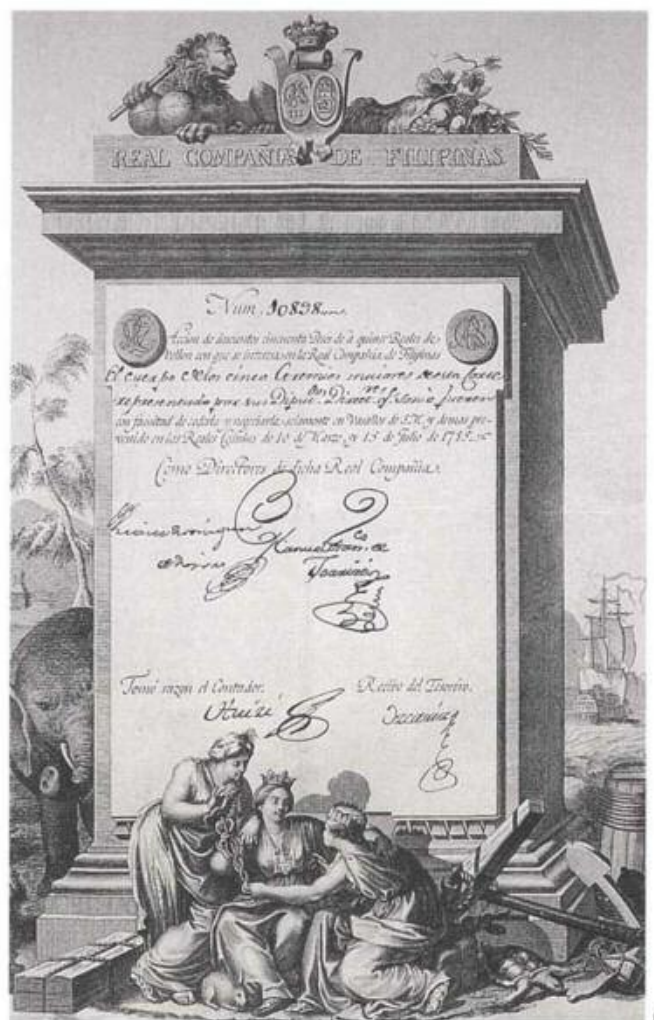 REAL COMPAÑIA DE FILIPINAS
Num. 10898
Accion de doscientos cincuenta Pesos de à quince Reales de
vellon con que se interesa en la Real Compañia de Filipinas
El cuerpo de los cinco Gremios maiores de esta Corte
representado por sus Diput.
con facultad de cederla y negociarla solamente en Vasallos de S.M. y demas pre-
venido en las Reales Cedulas de 10 de Marzo y 15 de Julio de 1785
Como Directores de dicha Real Compañia.
Tomé razon el Contador.
Recibo del Tesorero.